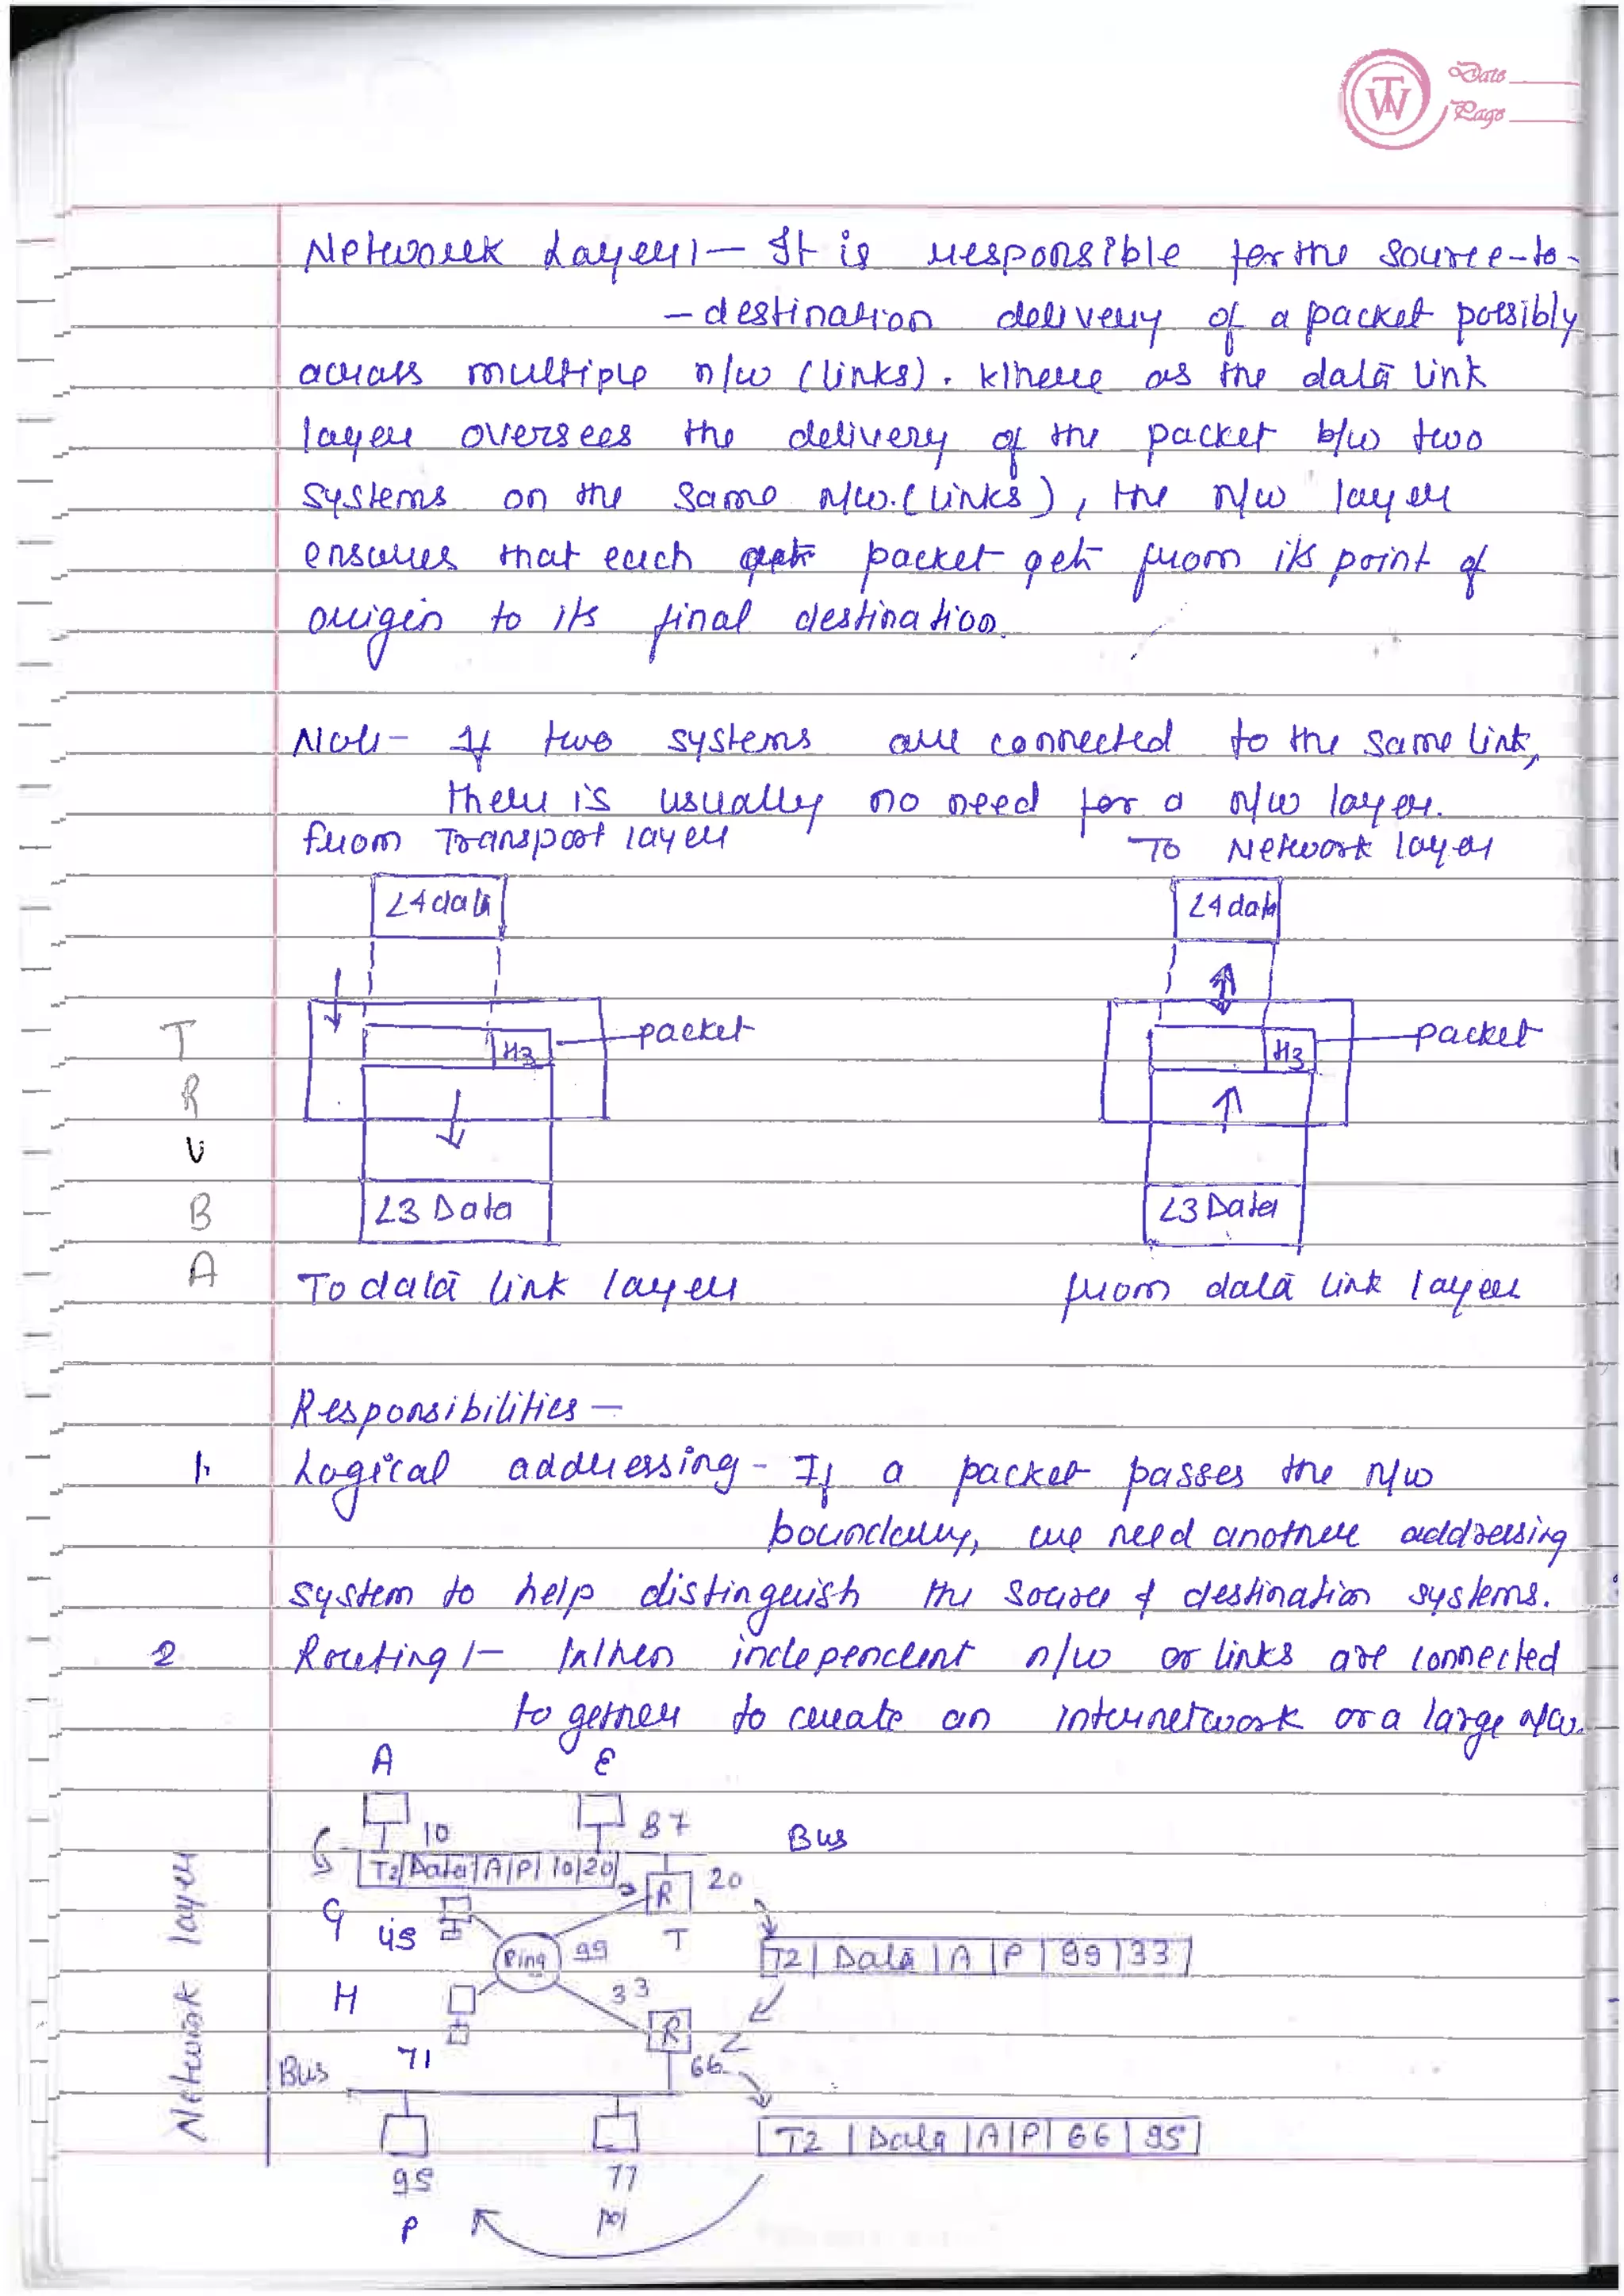 TW
Date
Page
Network Layer:- It is responsible for the source-to-
- destination delivery of a packet possibly
across multiple n/w (links). Where as the data link
layer oversees the delivery of the packet b/w two
systems on the same n/w.(links), the n/w layer
ensures that each packet get from its point of
origin to its final destination.
Note- If two systems are connected to the same link,
there is usually no need for a n/w layer.
from Transport layer To Network layer
L4 data L4 data
T
packet packet
H3 H3
R
U
B
L3 Data L3 Data
A
To data link layer from data link layer
Responsibilities -
1. Logical addressing - If a packet passes the n/w
boundary, we need another addressing
system to help distinguish the source & destination systems.
2 Routing :- When independent n/w or links are connected
together to create an internetwork or a large n/w.
A E
10 87 Bus
T2|Data|A|P|10|20|
R 20
G 45
T
Ring 99
T2 | Data | A | P | 99 | 33 |
H 33
R Z
71 66
Bus
T2 | Data | A | P | 66 | 95 |
95 77
P
Network layer